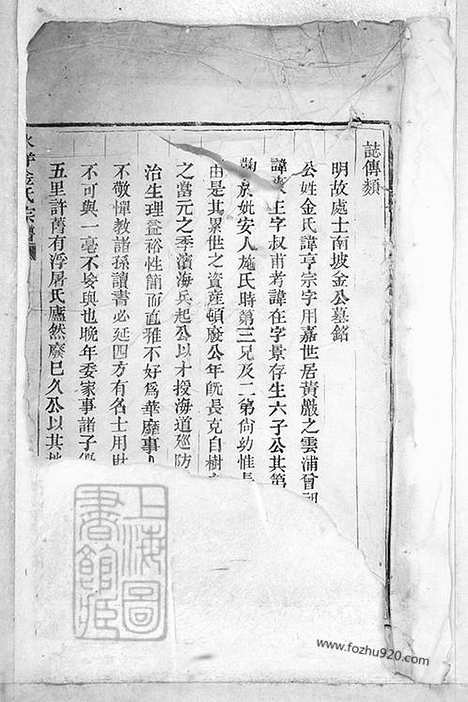 誌傳類
明故處士南坡金公墓銘
公姓金氏諱亨宗字用嘉世居黃巖之雲浦曾
諱 字叔甫考諱在字景存生六子公其第
於妣安人施氏時第三兄及二弟尚幼惟長
由是其累世之資產頓廢公年既長克自樹
之當元之季濱海兵起公以才授海道巡防
治生理益裕性簡而直雅不好為華靡事
不敬憚教諸孫讀書必延四方有名士用財
不可與一毫不妄與也晚年委家事諸子
五里許舊有浮屠氏廬然廢已久公以其地
氏宗譜
上海圖書館藏
www.fozhu920.com